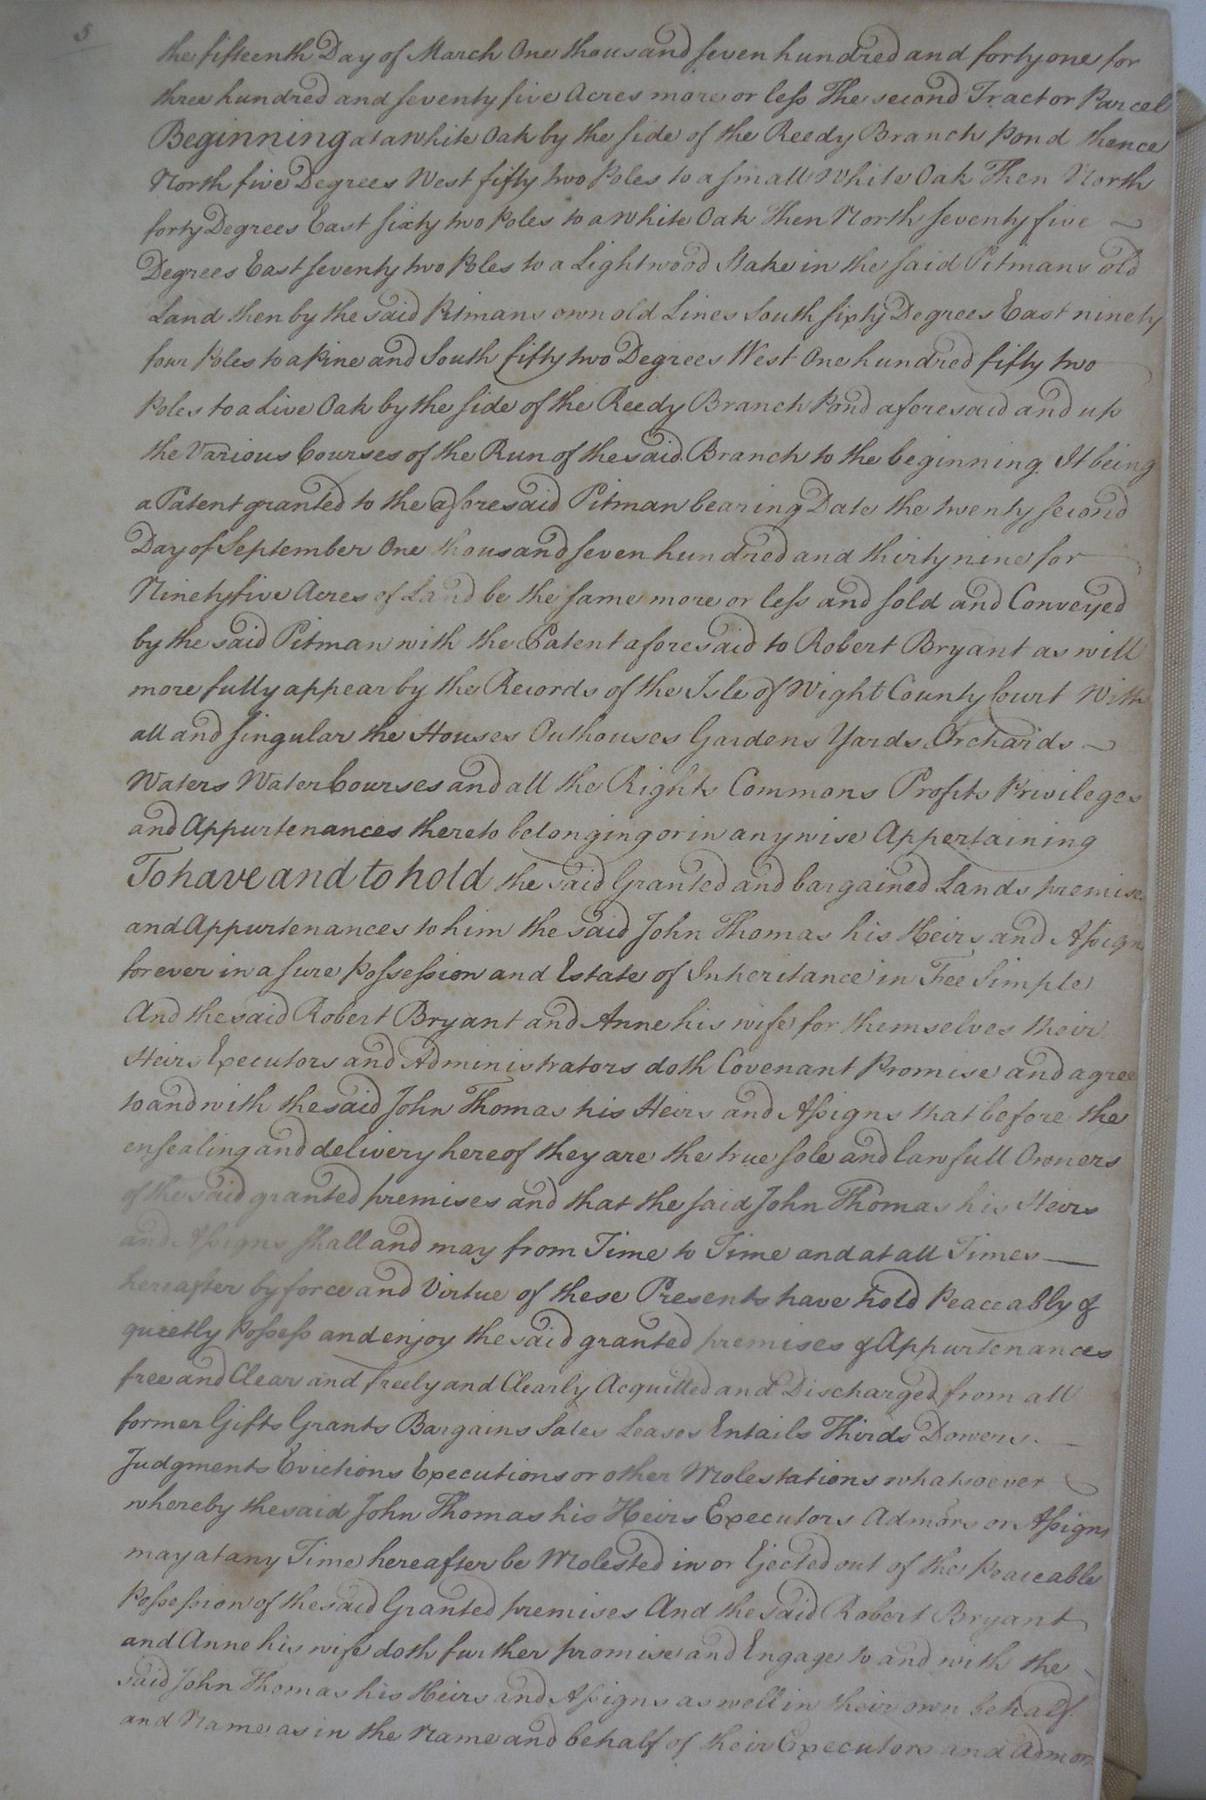 5
the fifteenth Day of March One thousand seven hundred and forty one for
three hundred and seventy five Acres more or less The second Tract or Parcel
Beginning at a white Oak by the side of the Reedy Branch Pond thence
North five Degrees West fifty two Poles to a small White Oak Then North
forty Degrees East sixty two Poles to a white Oak Then North seventy five
Degrees East seventy two Poles to a Lightwood Stake in the said Pitmans old
Land then by the said Pitmans own old Lines South sixty Degrees East ninety
four Poles to a Pine and South fifty two Degrees West One hundred fifty two
Poles to a Live Oak by the side of the Reedy Branch Pond aforesaid and up
the Various Courses of the Run of the said Branch to the beginning It being
a Patent granted to the aforesaid Pitman bearing Date the twenty second
Day of September One thousand seven hundred and thirty nine for
Ninety five Acres of Land be the same more or less and sold and Conveyed
by the said Pitman with the Patent aforesaid to Robert Bryant as will
more fully appear by the Records of the Isle of Wight County Court With
all and singular the Houses Outhouses Gardens Yards Orchards
Waters Water Courses and all the Rights Commons Profits Privileges
and Appurtenances thereto belonging or in any wise Appertaining
To have and to hold the said Granted and bargained Lands premises
and Appurtenances to him the said John Thomas his Heirs and Assigns
forever in a sure Possession and Estate of Inheritance in Fee Simple
And the said Robert Bryant and Anne his wife for themselves their
Heirs Executors and Administrators doth Covenant Promise and agree
to and with the said John Thomas his Heirs and Assigns that before the
ensealing and delivery hereof they are the true sole and lawfull Owners
of the said granted premises and that the said John Thomas his Heirs
and Assigns shall and may from Time to Time and at all Times
hereafter by force and Virtue of these Presents have hold Peaceably &
quietly Possess and enjoy the said granted premises & Appurtenances
free and Clear and freely and Clearly Acquitted and Discharged from all
former Gifts Grants Bargains Sales Leases Entails Thirds Dowers
Judgments Evictions Executions or other Molestations whatsoever
whereby the said John Thomas his Heirs Executors Admors or Assigns
may at any Time hereafter be Molested in or Ejected out of the Peaceable
Possession of the said Granted premises And the said Robert Bryant
and Anne his wife doth further promise and Engage to and with the
said John Thomas his Heirs and Assigns as well in their own behalf
and Name as in the Name and behalf of their Executors and Admors